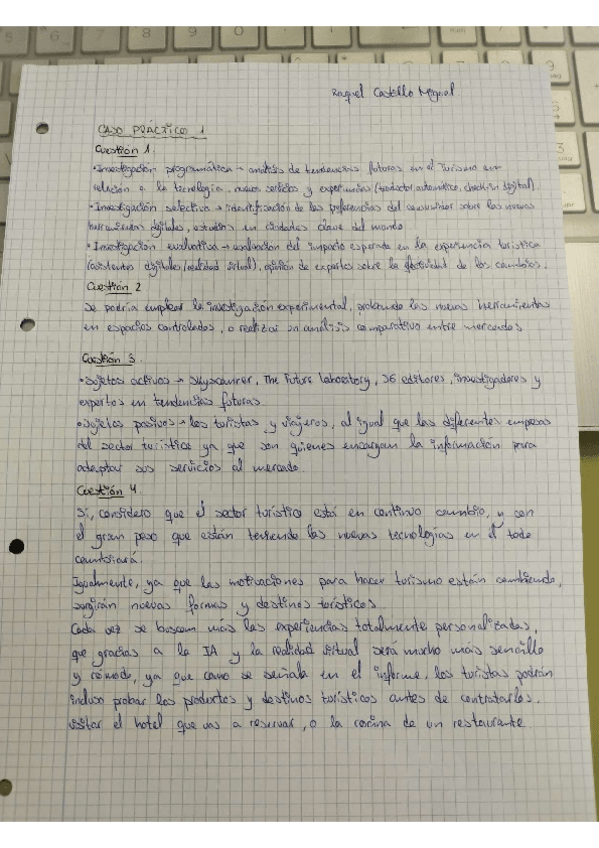 Raquel Castillo Miguel
CASO PRÁCTICO 1
Cuestión 1.
• Investigación programática → análisis de tendencias futuras en el Turismo con
relación a la tecnología, nuevos servicios y experiencias (traductor automático, check-in digital).
• Investigación selectiva → identificación de las preferencias del consumidor sobre las nuevas
herramientas digitales, estudios en ciudades clave del mundo
• Investigación evaluativa → evaluación del impacto esperado en la experiencia turística
(asistentes digitales/realidad virtual), opinión de expertos sobre la efectividad de los cambios.
Cuestión 2
Se podría emplear la investigación experimental, probando las nuevas herramientas
en espacios controlados, o realizar un análisis comparativo entre mercados
Cuestión 3.
• Sujetos activos → Skyscanner, The Future Laboratory, 56 editores, investigadores y
expertos en tendencias futuras.
• Sujetos pasivos → los turistas y viajeros, al igual que las diferentes empresas
del sector turístico ya que son quienes encargan la información para
adaptar sus servicios al mercado.
Cuestión 4.
Sí, considero que el sector turístico está en continuo cambio, y con
el gran peso que están teniendo las nuevas tecnologías en él todo
cambiará.
Igualmente, ya que las motivaciones para hacer turismo están cambiando,
surgirán nuevas formas y destinos turísticos.
Cada vez se buscan más las experiencias totalmente personalizadas,
que gracias a la IA y la realidad virtual será mucho más sencillo
y cómodo, ya que como se señala en el informe, los turistas podrán
incluso probar los productos y destinos turísticos antes de contratarlos.
visitar el hotel que vas a reservar, o la cocina de un restaurante